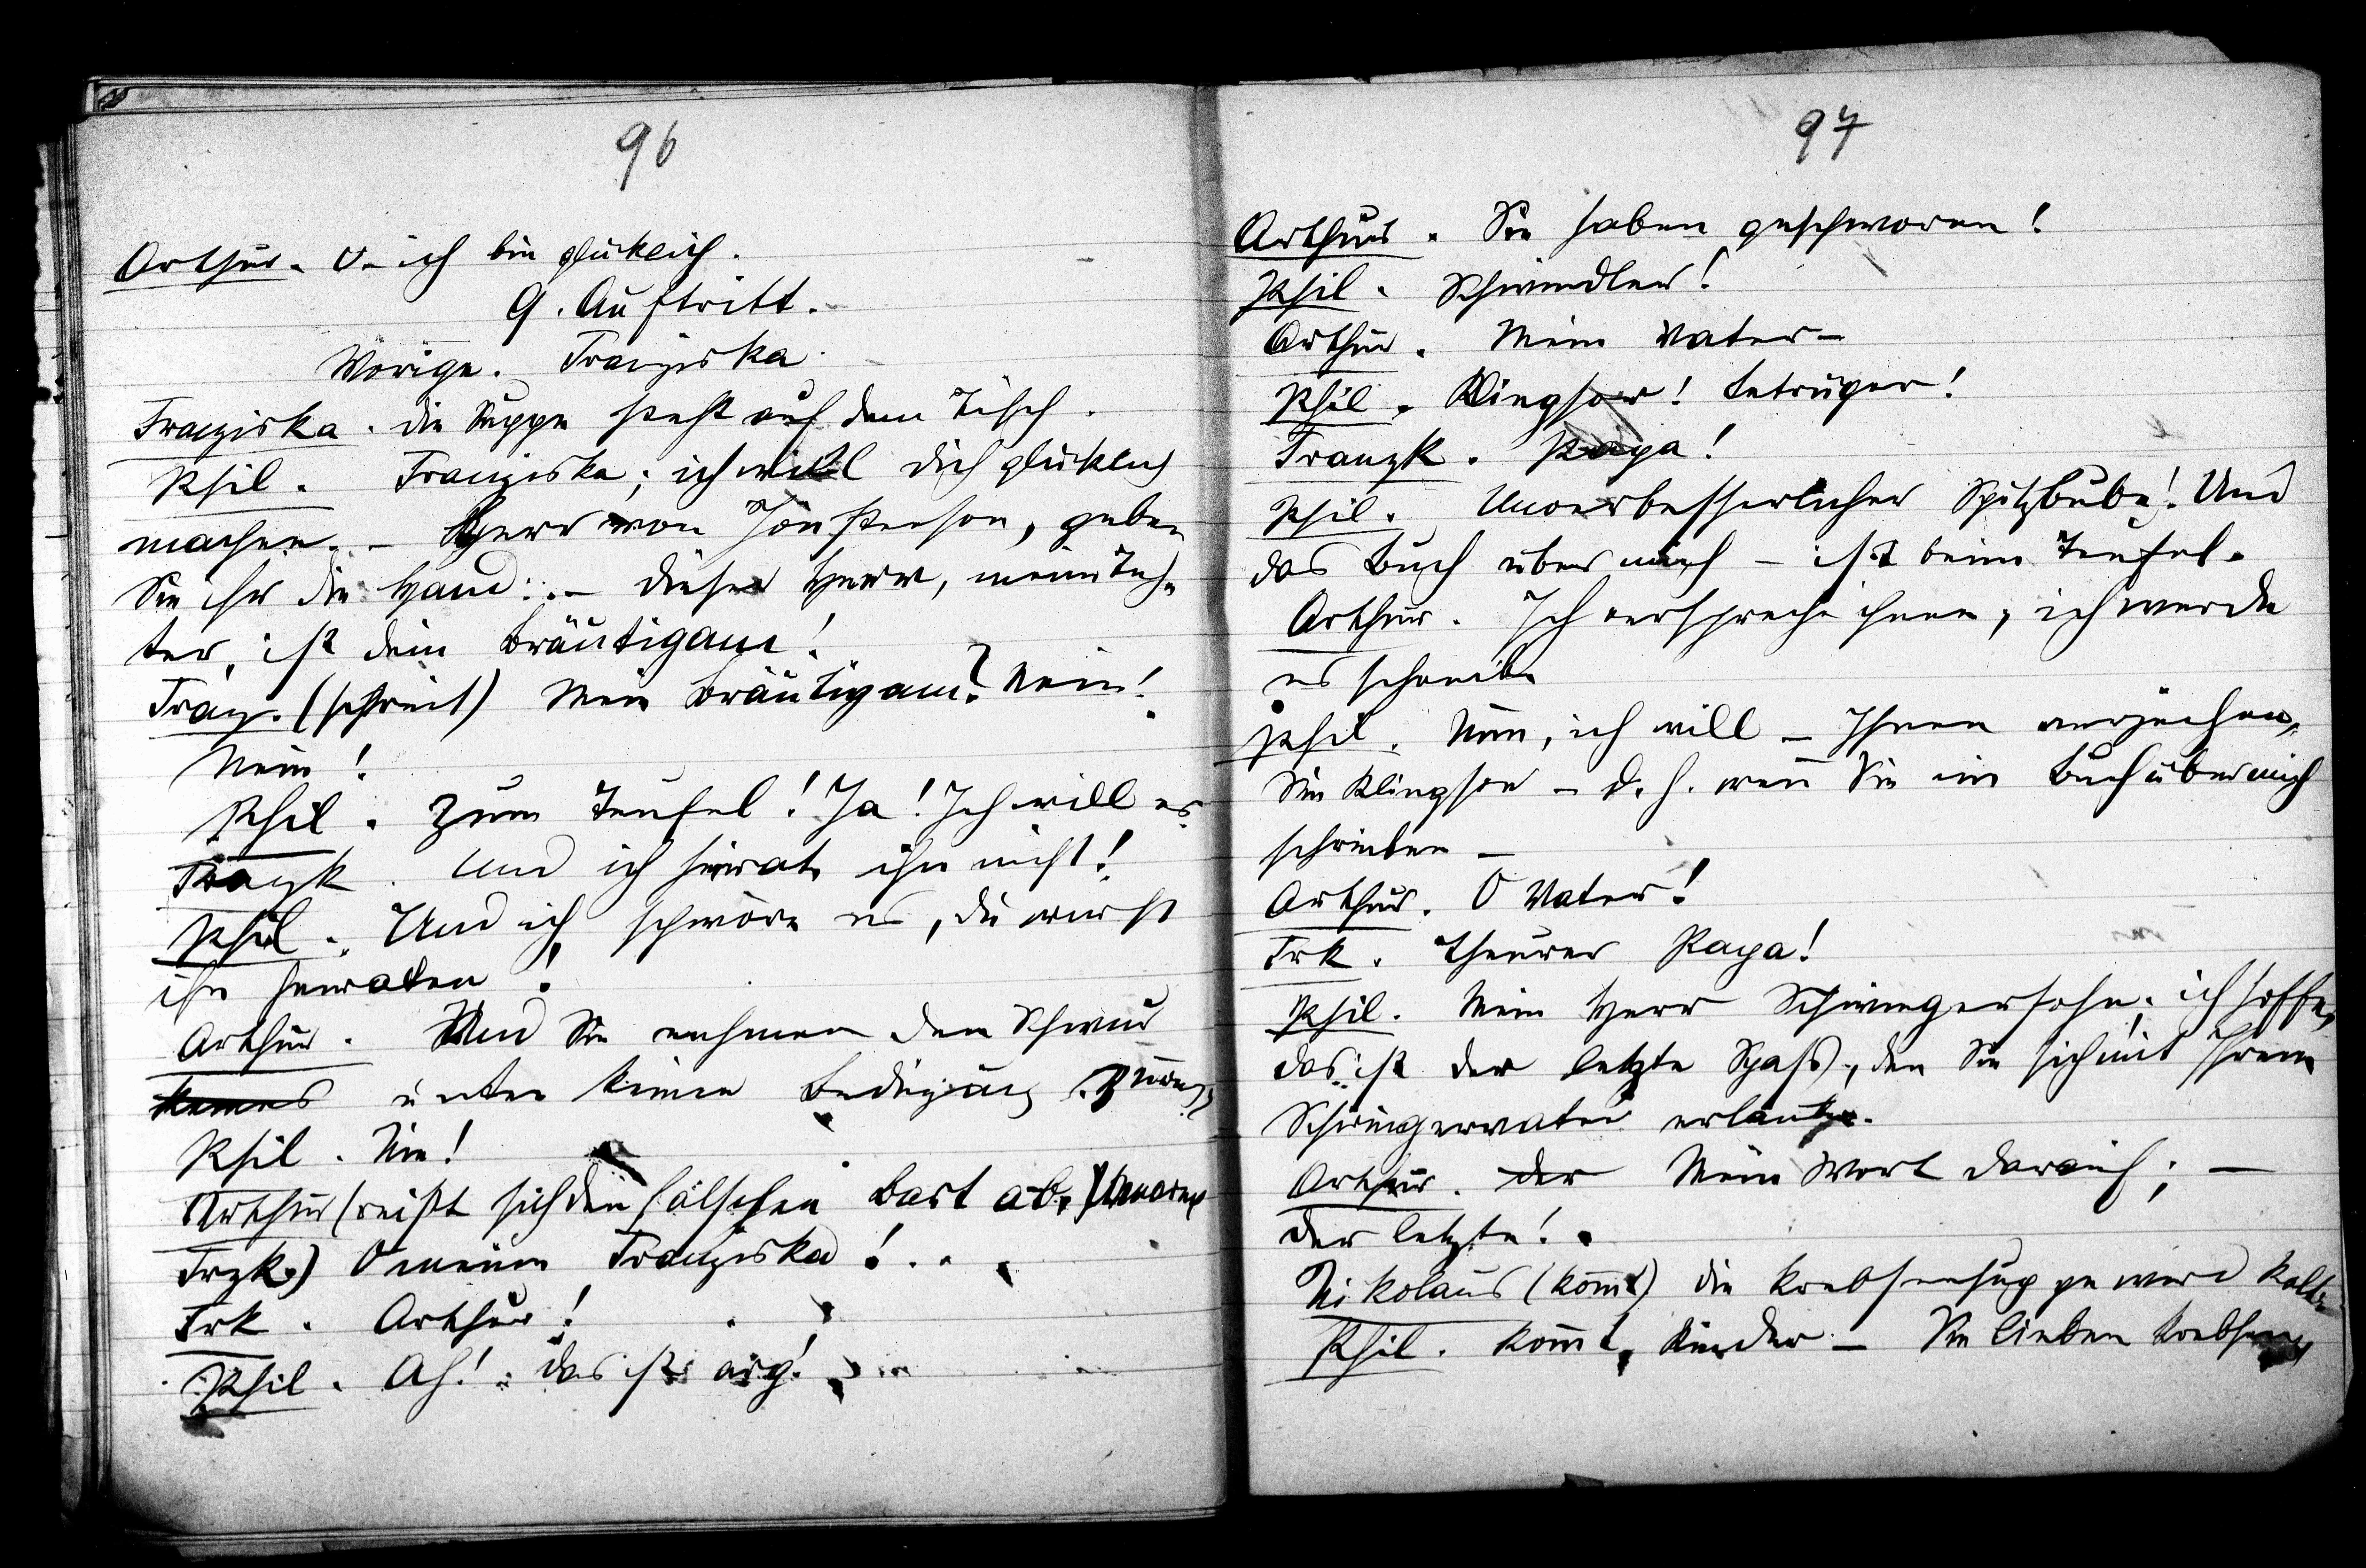 96
Arthur. O ich bin glücklich.
9. Auftritt.
Vorige. Franziska.
Franziska. Die Suppe steht auf dem Tisch.
Phil. Franziska; ich will dich glücklich
machen. – Herr von Jonsterson, geben
Sie ihr die Hand: – Dieser Herr, meine Toch
ter, ist dein Bräutigam!
Franz. (schreit) Mein Bräutigam? Nein!
Nein!
Phil. Zum Teufel! Ja! Ich will es
Franzk. Und ich heirate ihn nicht!
Phil. Und ich schwöre es, du wirst
ihn heiraten!
Arthur. Und Sie nehmen den Schwur
unter keiner Bedingung
Phil. Nie!
Arthur (reißt sich den falschen Bart ab.)
Frzk.) O meine Franziska! . .
Frk. Arthur!
Phil. Ah! das ist arg!
97
Arthur. Sie haben geschworen!
Phil. Schwindler!
Arthur. Mein Vater –
Phil. Klingson! Betrüger!
Franzk. Papa!
Phil. Unverbesserlicher Spitzbube! Und
das Buch über mich – ist beim Teufel.
Arthur. Ich verspreche ihnen, ich werde
es schreiben
Phil. Nun, ich will – Ihnen verzeihen,
Sie Klingson – d. h. wen̄ Sie ein Buch über mich
schrieben –
Arthur. O Vater!
Frk. Theurer Papa!
Phil. Mein Herr Schwiegersohn, ich hoffe,
das ist der letzte Spass, den Sie sich mit Ihrem
Schwiegervater erlauben.
Arthur. der Mein Wort darauf; –
der letzte!
Nikolaus (kom̄t) Die Krebsensuppe wird kalt
Phil. Kom̄t, Kinder – Sie lieben